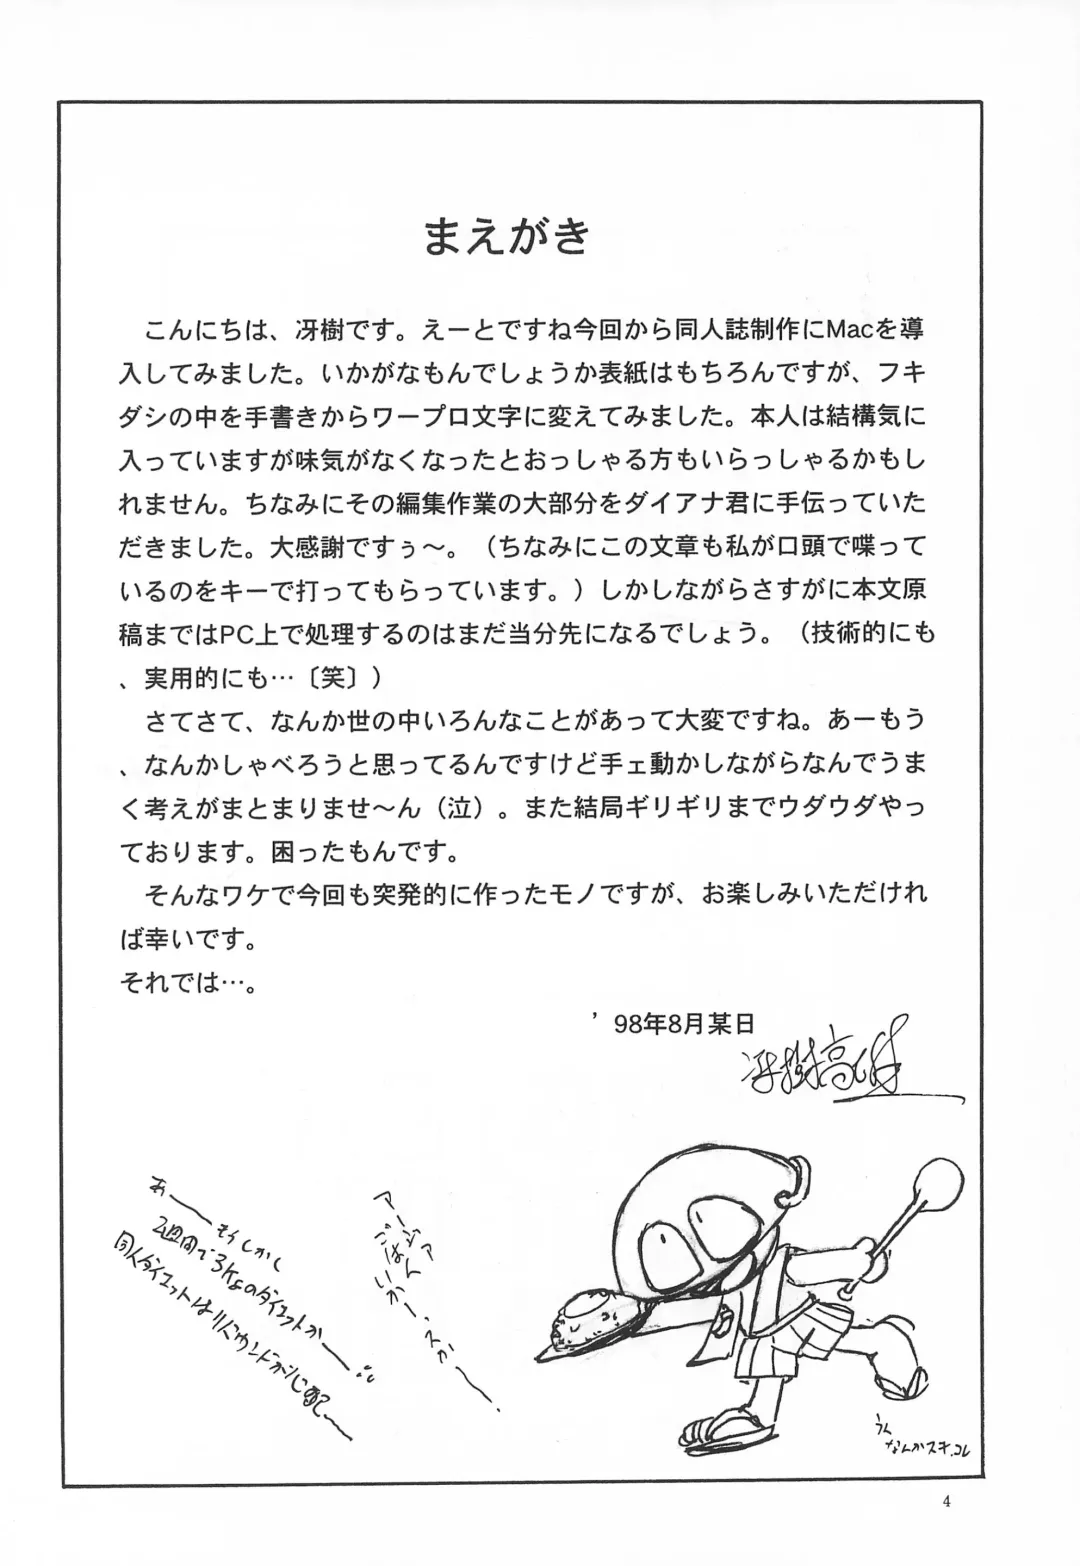 まえがき
　こんにちは、冴樹です。えーとですね今回から同人誌制作にMacを導
入してみました。いかがなもんでしょうか表紙はもちろんですが、フキ
ダシの中を手書きからワープロ文字に変えてみました。本人は結構気に
入っていますが味気がなくなったとおっしゃる方もいらっしゃるかもし
れません。ちなみにその編集作業の大部分をダイアナ君に手伝っていた
だきました。大感謝ですぅ〜。（ちなみにこの文章も私が口頭で喋って
いるのをキーで打ってもらっています。）しかしながらさすがに本文原
稿まではPC上で処理するのはまだ当分先になるでしょう。（技術的にも
、実用的にも…〔笑〕）
　さてさて、なんか世の中いろんなことがあって大変ですね。あーもう
、なんかしゃべろうと思ってるんですけど手ェ動かしながらなんでうま
く考えがまとまりませ〜ん（泣）。また結局ギリギリまでウダウダやっ
ております。困ったもんです。
　そんなワケで今回も突発的に作ったモノですが、お楽しみいただけれ
ば幸いです。
それでは…。
’98年8月某日
冴樹高雄
アージァ
ごはんいかー、スかー
あーもしかし
2週間で3kgのダイエットかー
同人ダイエットはリバウンドが心配で〜
うん
なんかスキ、コレ
4